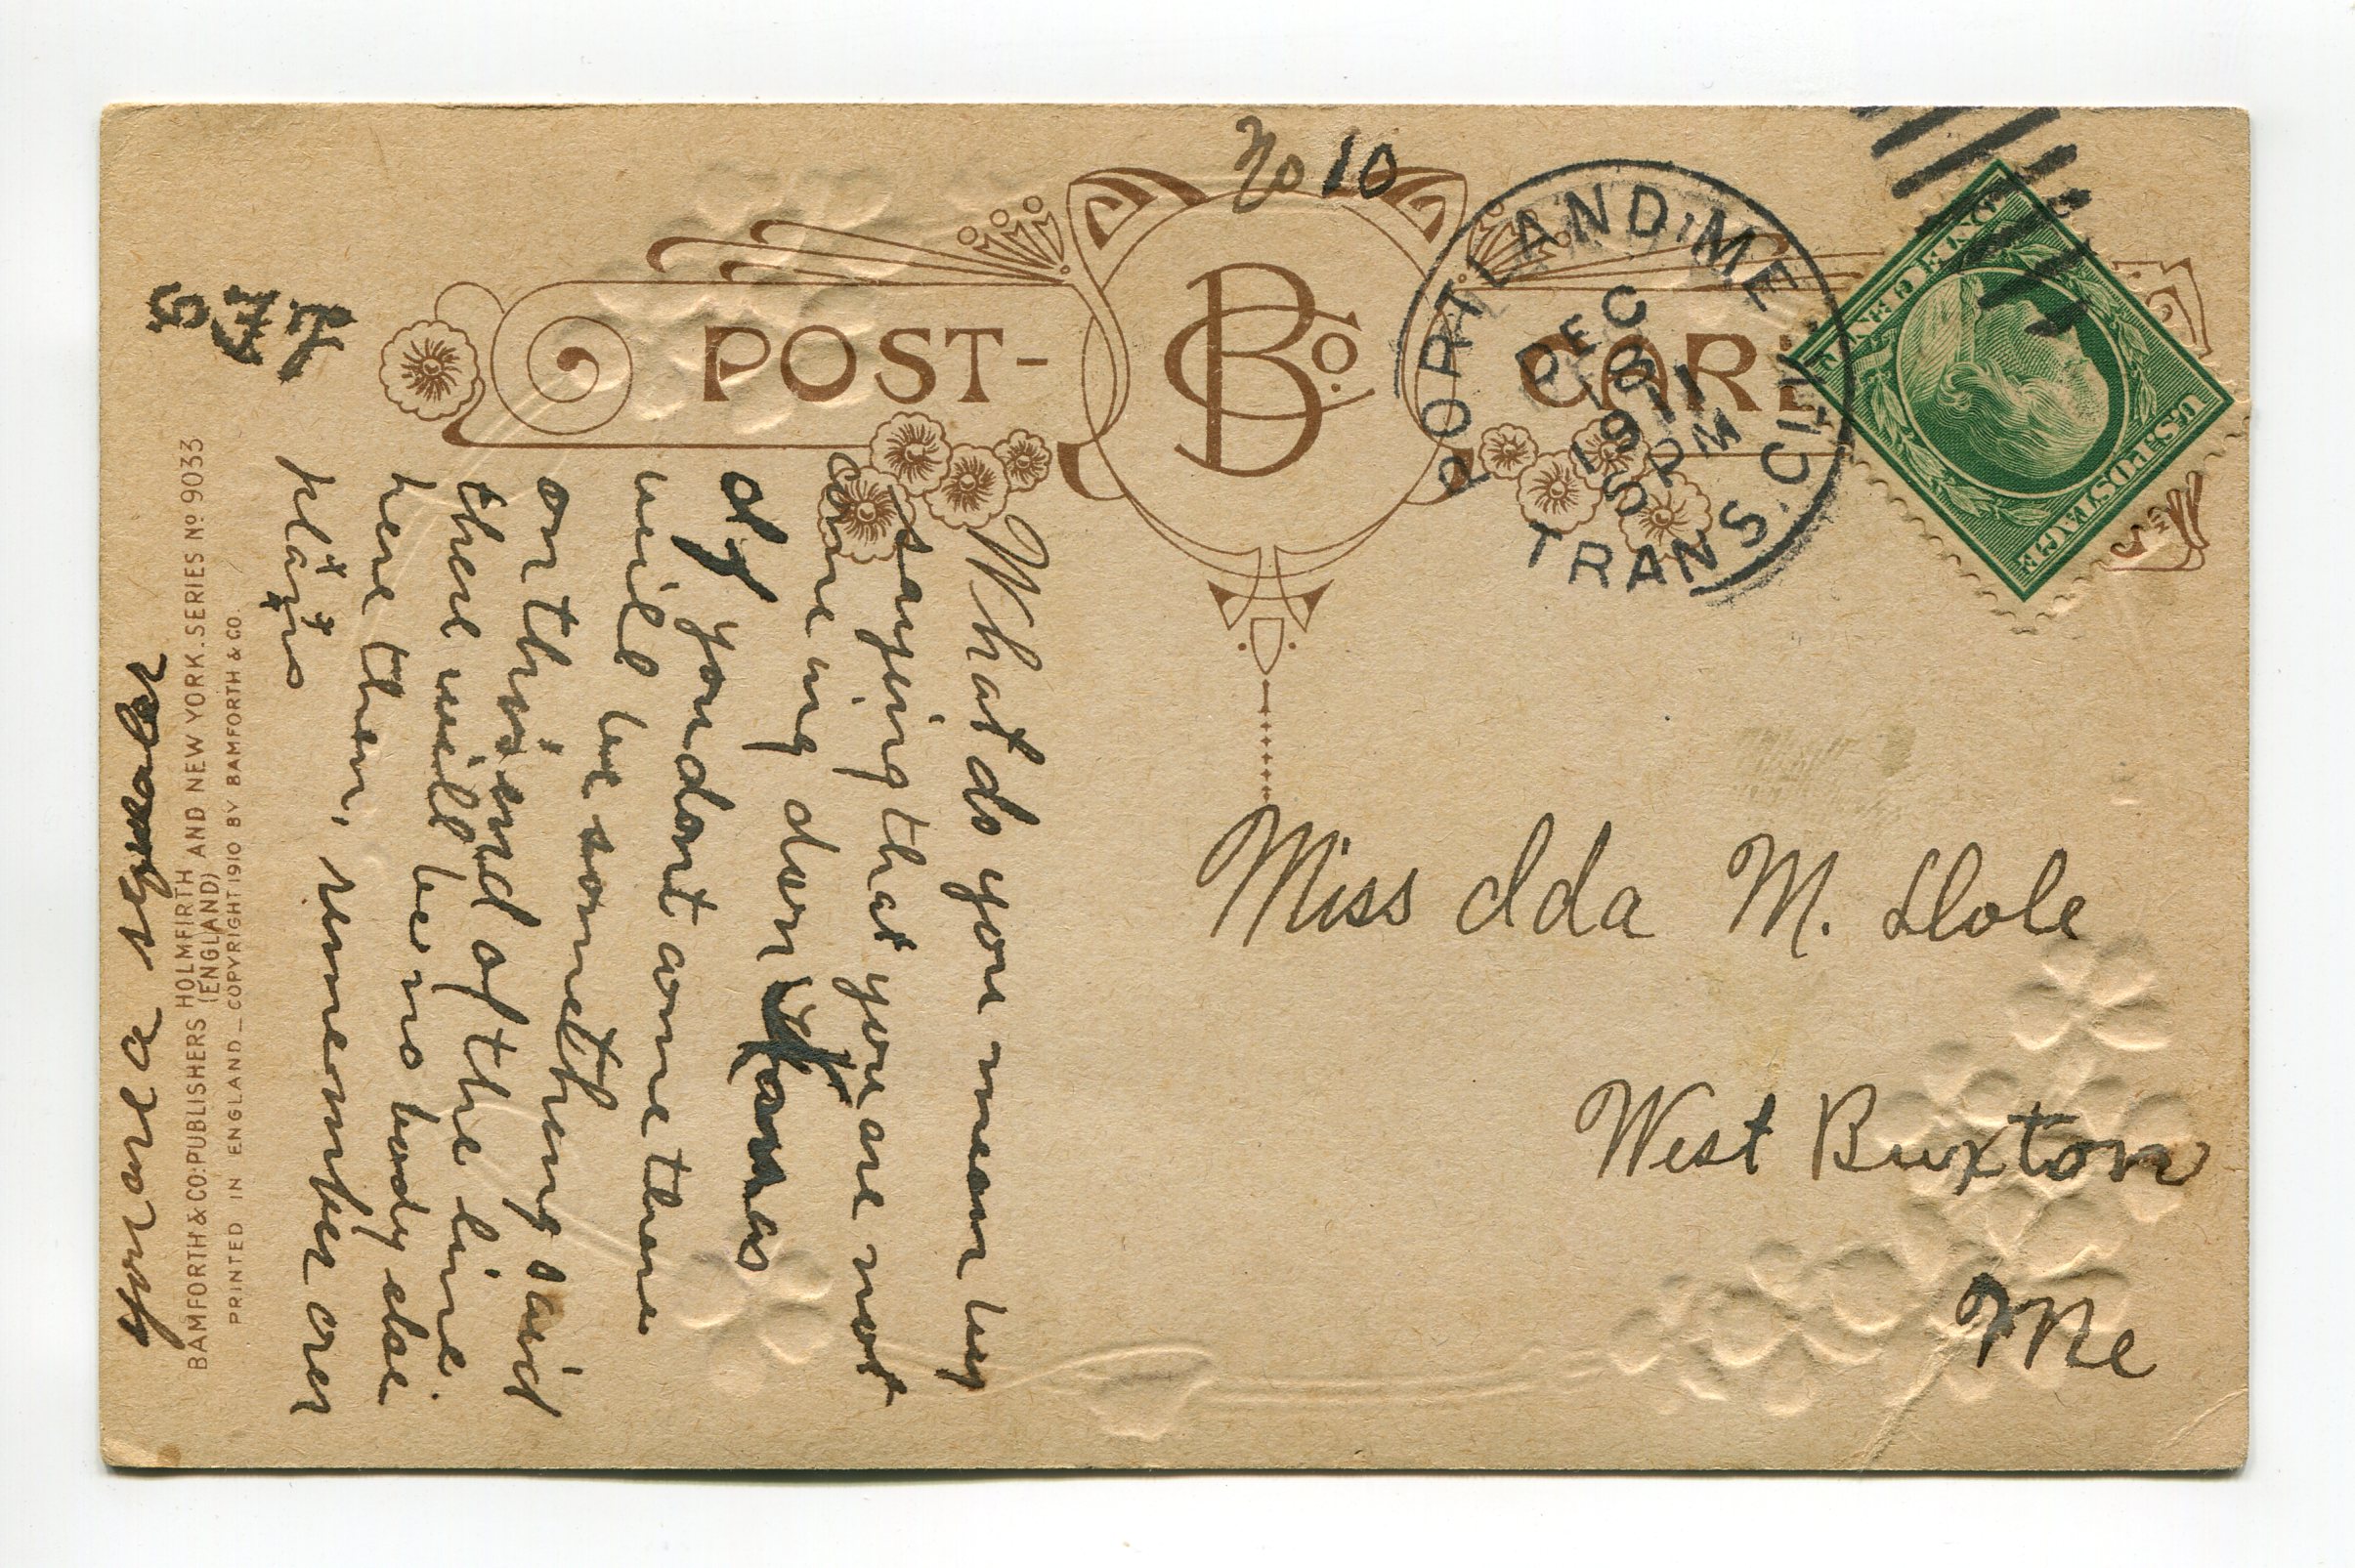 No 10
POST-
B Co.
CARD
PORTLAND, ME.
DEC
1911
TRANS. CLK.
U.S. POSTAGE
What do you mean by
saying that you are not
come ing down Xmas
If you dont come there
will be something said
on this end of the line.
there will be no body else
here then, rememper our
plans
you are a squealer
Miss Ida M. Dole
West Buxton
Me
BAMFORTH & CO: PUBLISHERS HOLMFIRTH (ENGLAND) AND NEW YORK. SERIES No 9033
PRINTED IN ENGLAND_COPYRIGHT 1910 BY BAMFORTH & CO.